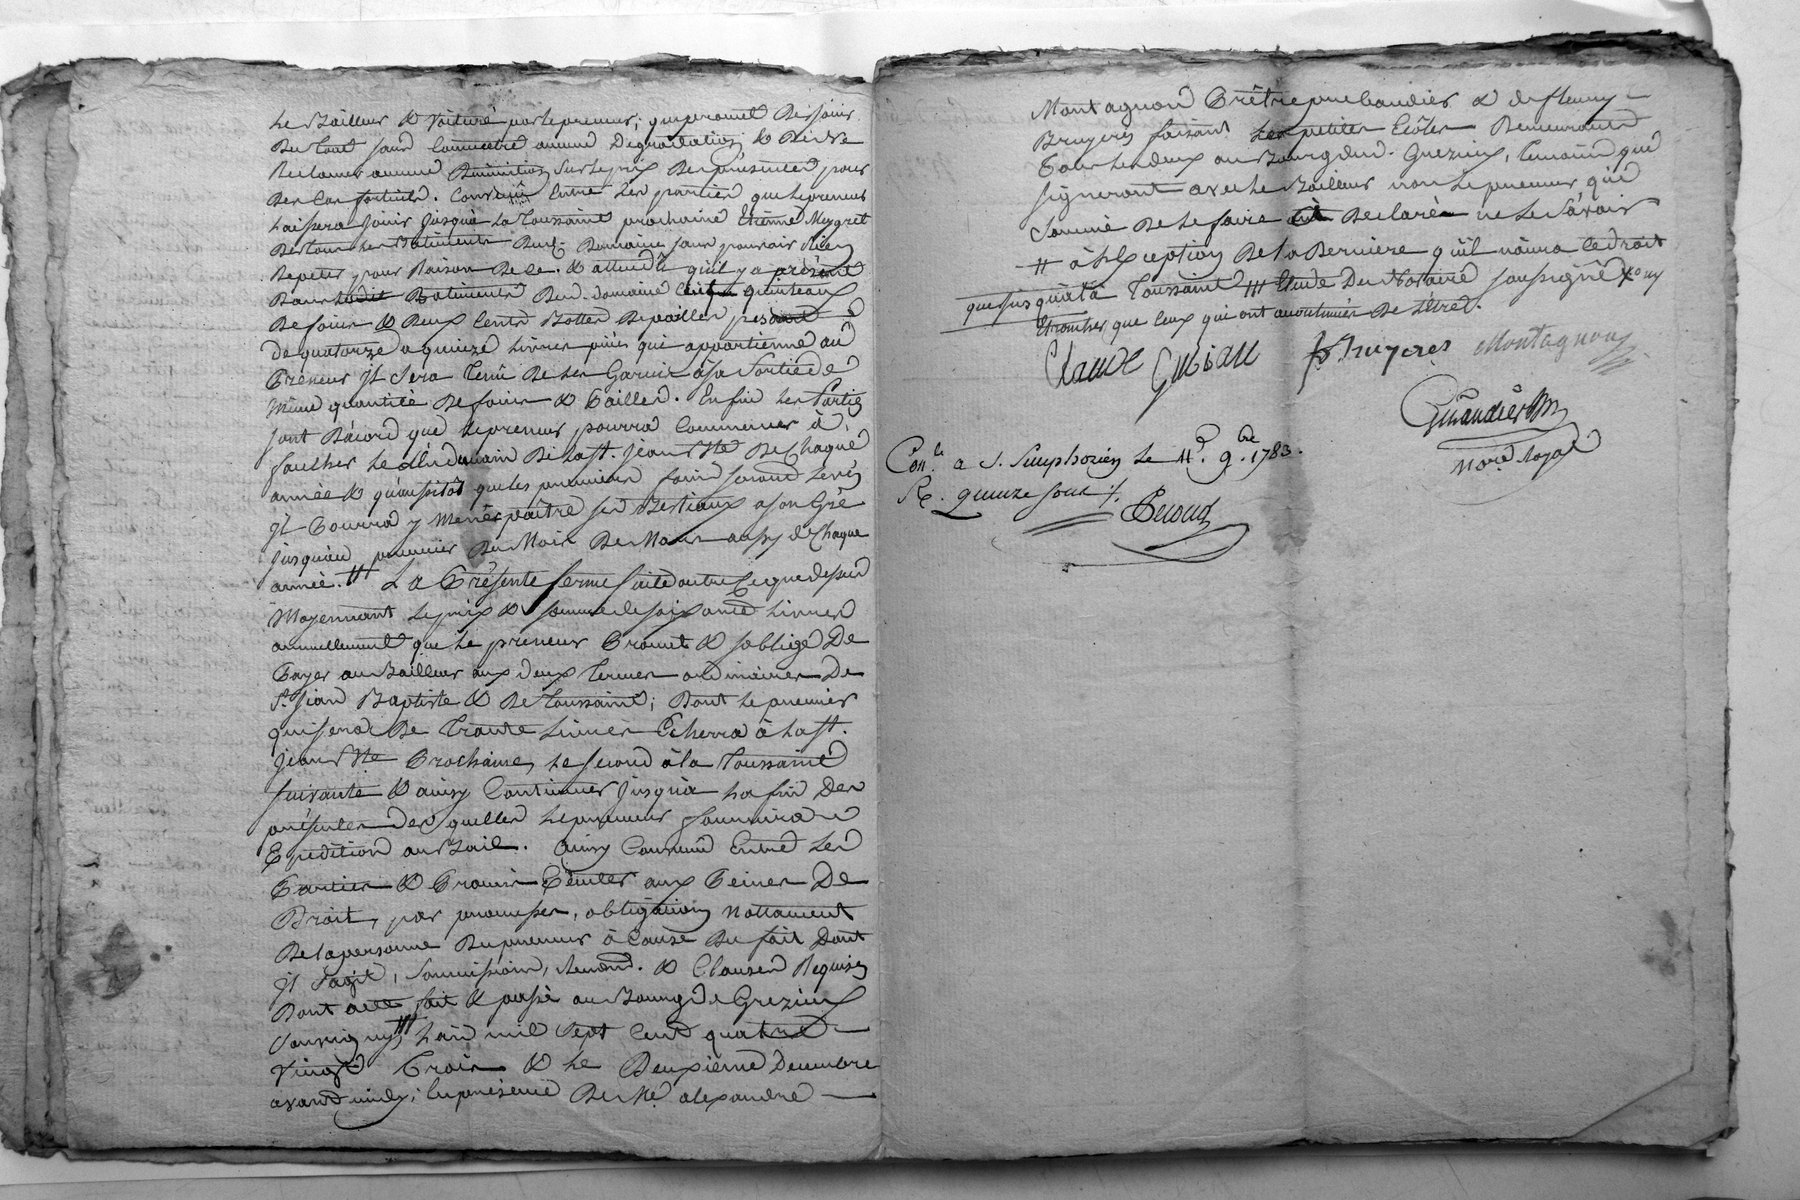 le Bailleur & voituré par le preneur; qui promet de jouir
du tout sans Commettre aucune Dégradation, & de ne
Reclamer aucune Diminution sur le prix des présentes pour
des Cas fortuits. Convenu Entre les parties que le preneur
laissera jouir jusqua la Toussaint prochaine Etienne Meygret
de tous les Batiments dud. Domaine sans pouvoir Rien
Repeter pour Raison de ce. & attendu qu'il y a présent
dans Batiments dud. Domaine quinteaux
de foin & deux Cents Bottes de pailles pesant
de quatorze a quinze livres pièce qui appartienne au
Preneur jl sera tenu de les Garnir à sa sortie de
même quantité de foin & Pailles. Enfin les Partie
sont dácord que le preneur pourra Commencer à
faucher le lendemain de la St. jean Bte de Chaque
année & qu'aussitôt que les premiers foins seront levés
jl Pourra y mener paitre ses Bestiaux a son Gré
jusquau premier du Mois de Mars aussy de Chaque
année. # La Présente ferme faite outre Ce que dessus
Moyennant le prix & somme de soixante livres
annuellement que le preneur Promet & soblige De
Payer au Bailleur aux deux Termes ordinaires De
St. jean Baptiste & de Toussaint; Dont le premier
qui sera de Trante livres Echerra à la St.
jean Bte Prochaine, le second à la Toussaint
suivante & ainsy Continuer jusquà la fin des
présentes des quelles le preneur fournira
Expédition au Bail. Ainsy Convenu Entre les
Parties & Promis Exécuter aux Peines De
Droit, par promesses, obligations Nottament
de la personne du preneur à Cause du fait Dont
jl sagit, soumissions, Renond. & Clauses Requises
Dont acte fait & passé au Bourg de Grezieux
Souvigny, ### lan mil sept Cent quatre
vingt Trois & le Deuxieme Decembre
avant midy; En présence de Me alexandre
Montagnon Prêtre prebandier & de fleury
Bruyeres faisant les petites Ecôles Demeurants
Tous les deux au Bourg dud. Grezieux, Temoins qui
signeront avec le Bailleur non le preneur qui
sommé de le faire a Declaré ne le Savoir
# à l'Exception de la Derniere qu'il nâura le droit
que jusquà la Toussaint ## Etude du Notaire soussigné
Etrambes que Ceux qui ont accoutumés de l'être.
Claude Gubian fs Bruyeres Montagnon
Not.re Royal
Con.lé a S. Simphorien le 11.e 9.bre 1783.
R. quinze sous